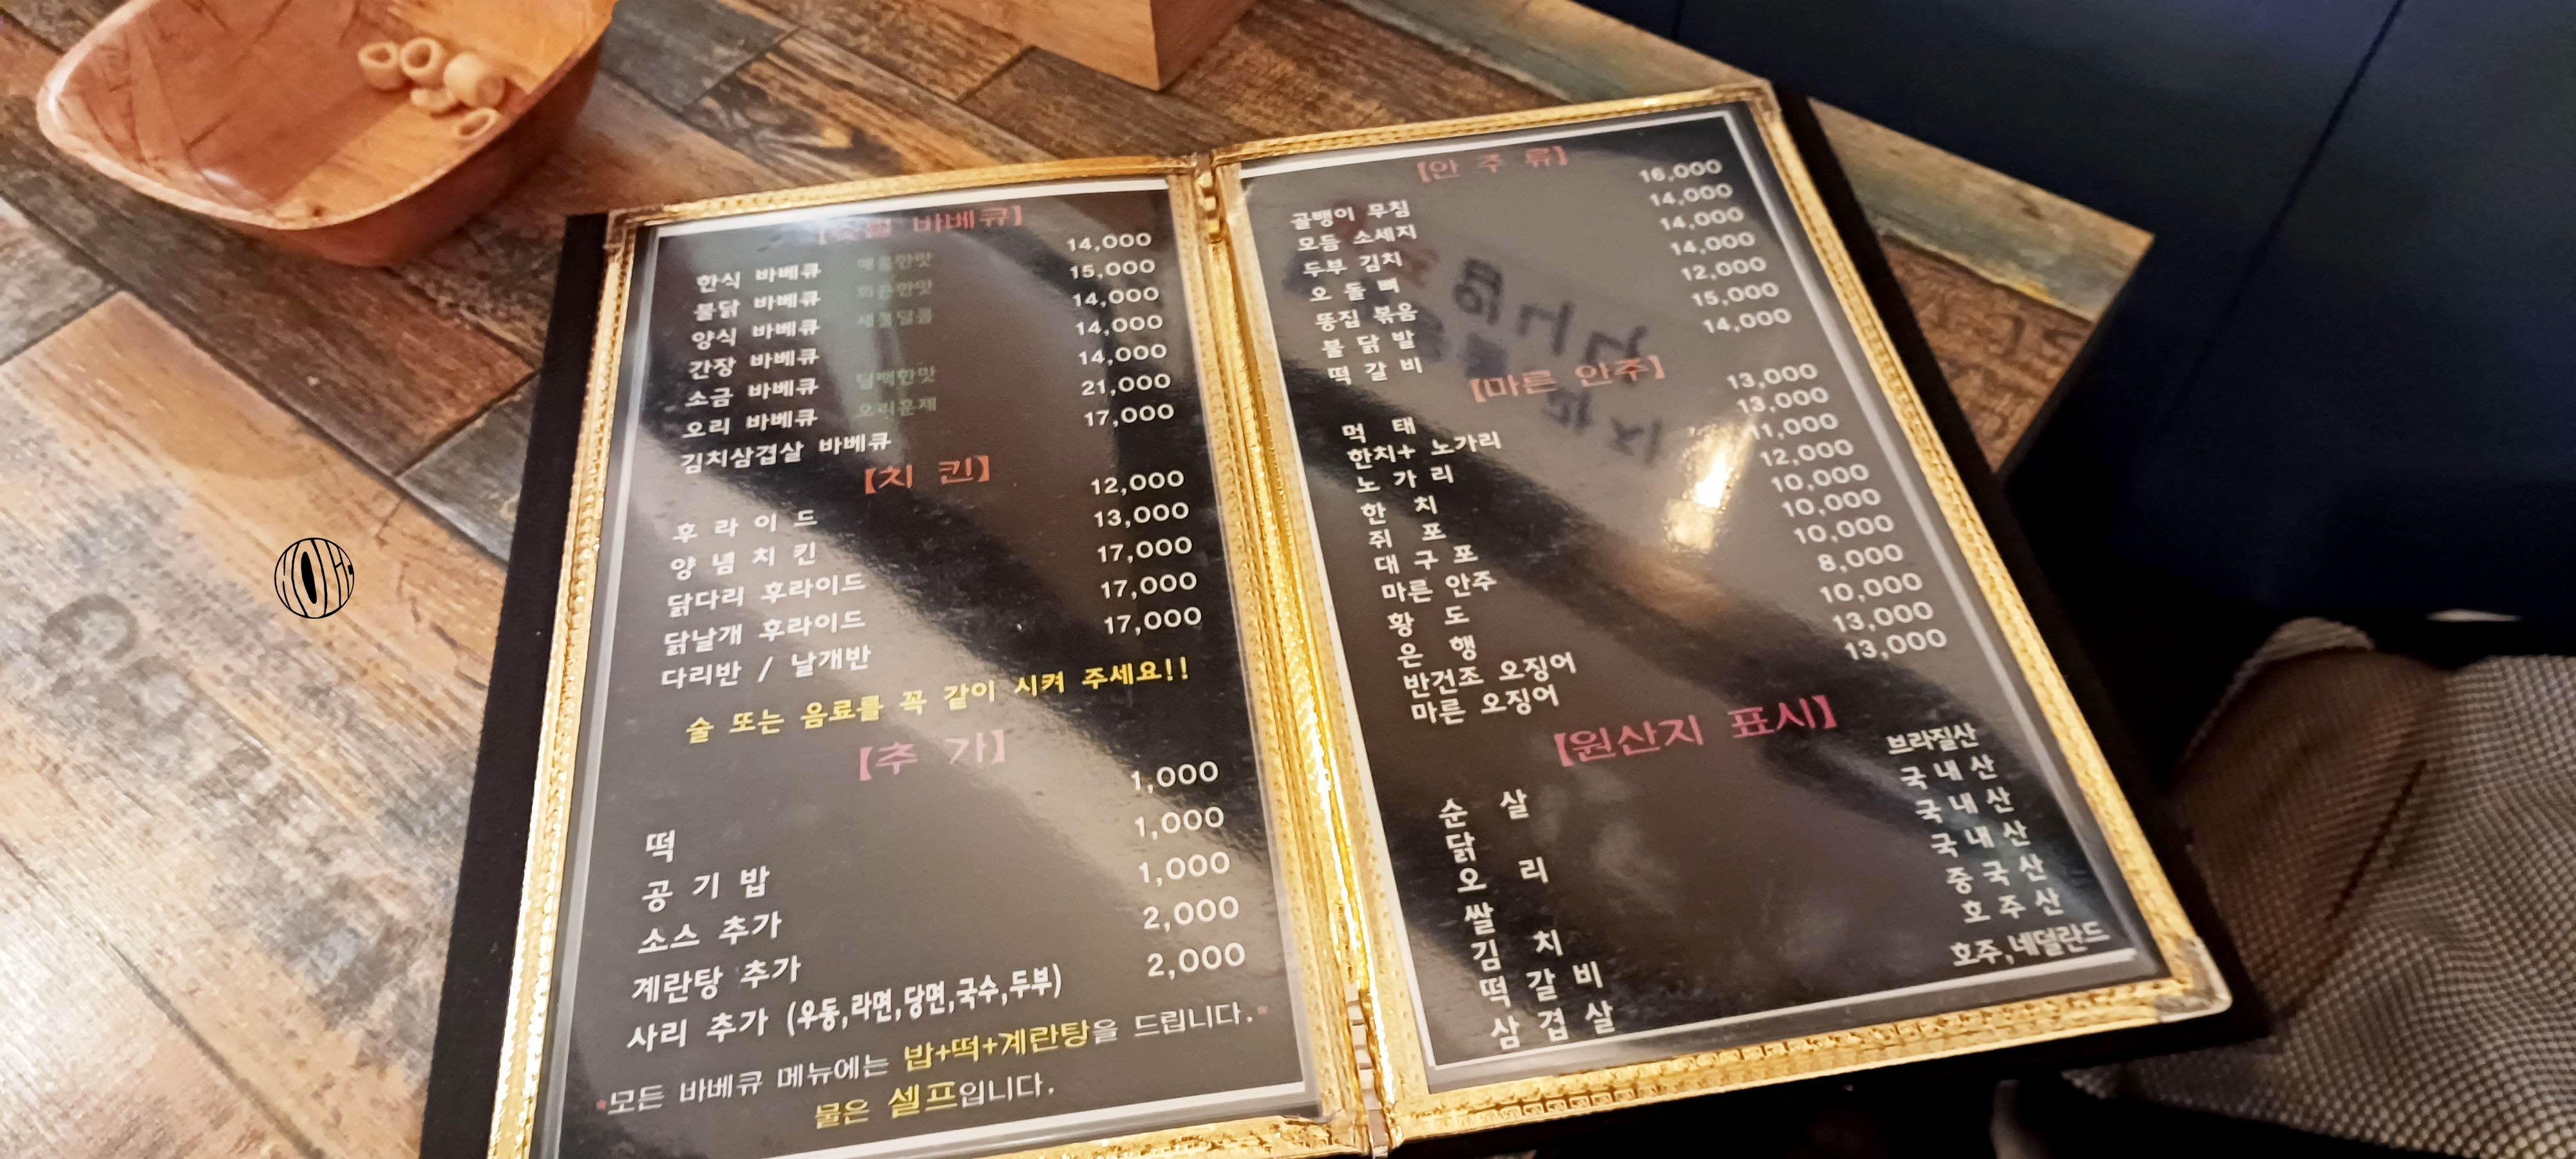 【숯불 바베큐】
한식 바베큐 매콤한맛 14,000
불닭 바베큐 화끈한맛 15,000
양식 바베큐 새콤달콤 14,000
간장 바베큐 14,000
소금 바베큐 담백한맛 14,000
오리 바베큐 오리훈제 21,000
김치삼겹살 바베큐 17,000
【치 킨】
후 라 이 드 12,000
양 념 치 킨 13,000
닭다리 후라이드 17,000
닭날개 후라이드 17,000
다리반 / 날개반 17,000
술 또는 음료를 꼭 같이 시켜 주세요!!
【추 가】
떡 1,000
공 기 밥 1,000
소스 추가 1,000
계란탕 추가 2,000
사리 추가 (우동,라면,당면,국수,두부) 2,000
*모든 바베큐 메뉴에는 밥+떡+계란탕을 드립니다.*
물은 셀프입니다.
【안 주 류】
골뱅이 무침 16,000
모듬 소세지 14,000
두부 김치 14,000
오 돌 뼈 14,000
똥집 볶음 12,000
불 닭 발 15,000
떡 갈 비 14,000
【마른 안주】
먹 태 13,000
한치+ 노가리 13,000
노 가 리 11,000
한 치 12,000
쥐 포 10,000
대 구 포 10,000
마른 안주 10,000
황 도 8,000
은 행 10,000
반건조 오징어 13,000
마른 오징어 13,000
【원산지 표시】
순 살 브라질산
닭 국 내 산
오 리 국 내 산
쌀 국 내 산
김 치 중 국 산
떡 갈 비 호 주 산
삼 겹 살 호주,네덜란드